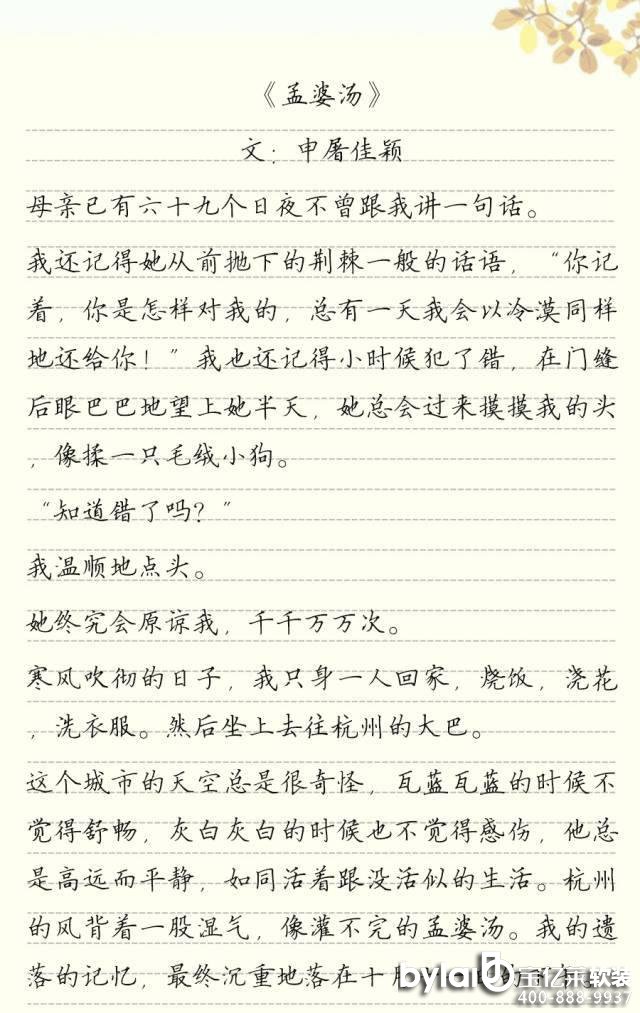 《孟婆汤》
文：申屠佳颖
母亲已有六十九个日夜不曾跟我讲一句话。
我还记得她从前抛下的荆棘一般的话语，“你记
着，你是怎样对我的，总有一天我会以冷漠同样
地还给你！”我也还记得小时候犯了错，在门缝
后眼巴巴地望上她半天，她总会过来摸摸我的头
，像揉一只毛绒小狗。
“知道错了吗？”
我温顺地点头。
她终究会原谅我，千千万万次。
寒风吹彻的日子，我只身一人回家，烧饭，浇花
，洗衣服。然后坐上去往杭州的大巴。
这个城市的天空总是很奇怪，瓦蓝瓦蓝的时候不
觉得舒畅，灰白灰白的时候也不觉得感伤，他总
是高远而平静，如同活着跟没活似的生活。杭州
的风背着一股湿气，像灌不完的孟婆汤。我的遗
落的记忆，最终沉重地落在十月
宝亿莱软装
400-888-9937